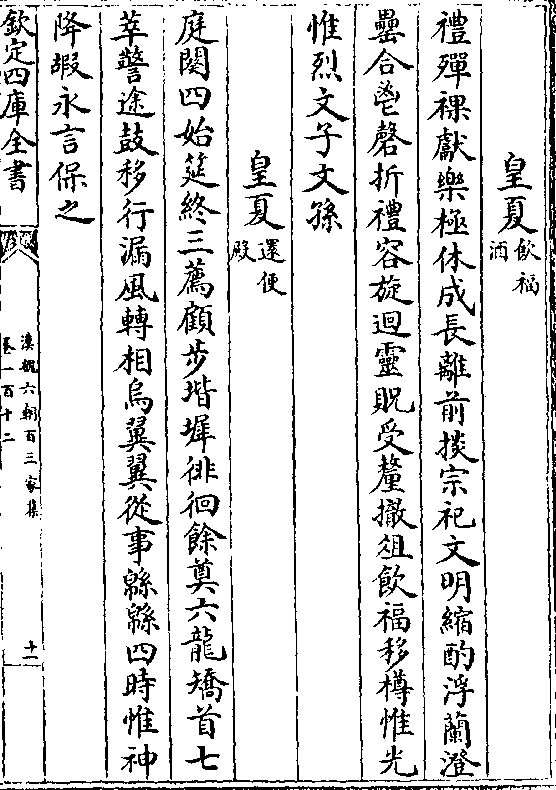 皇夏飲福酒
禮殫祼獻樂極休成長離前掞宗祀文明縮酌浮蘭澄
罍合鬯磬折禮容旋迴靈貺受釐撤俎飲福移樽惟光
惟烈文子文孫
皇夏還便殿
庭闋四始筵終三薦顧步堦墀徘徊餘奠六龍矯首七
萃警途鼓移行漏風轉相烏翼翼從事緜緜四時惟神
降嘏永言保之
欽定四庫全書
漢魏六朝百三家集
卷一百十二
十一